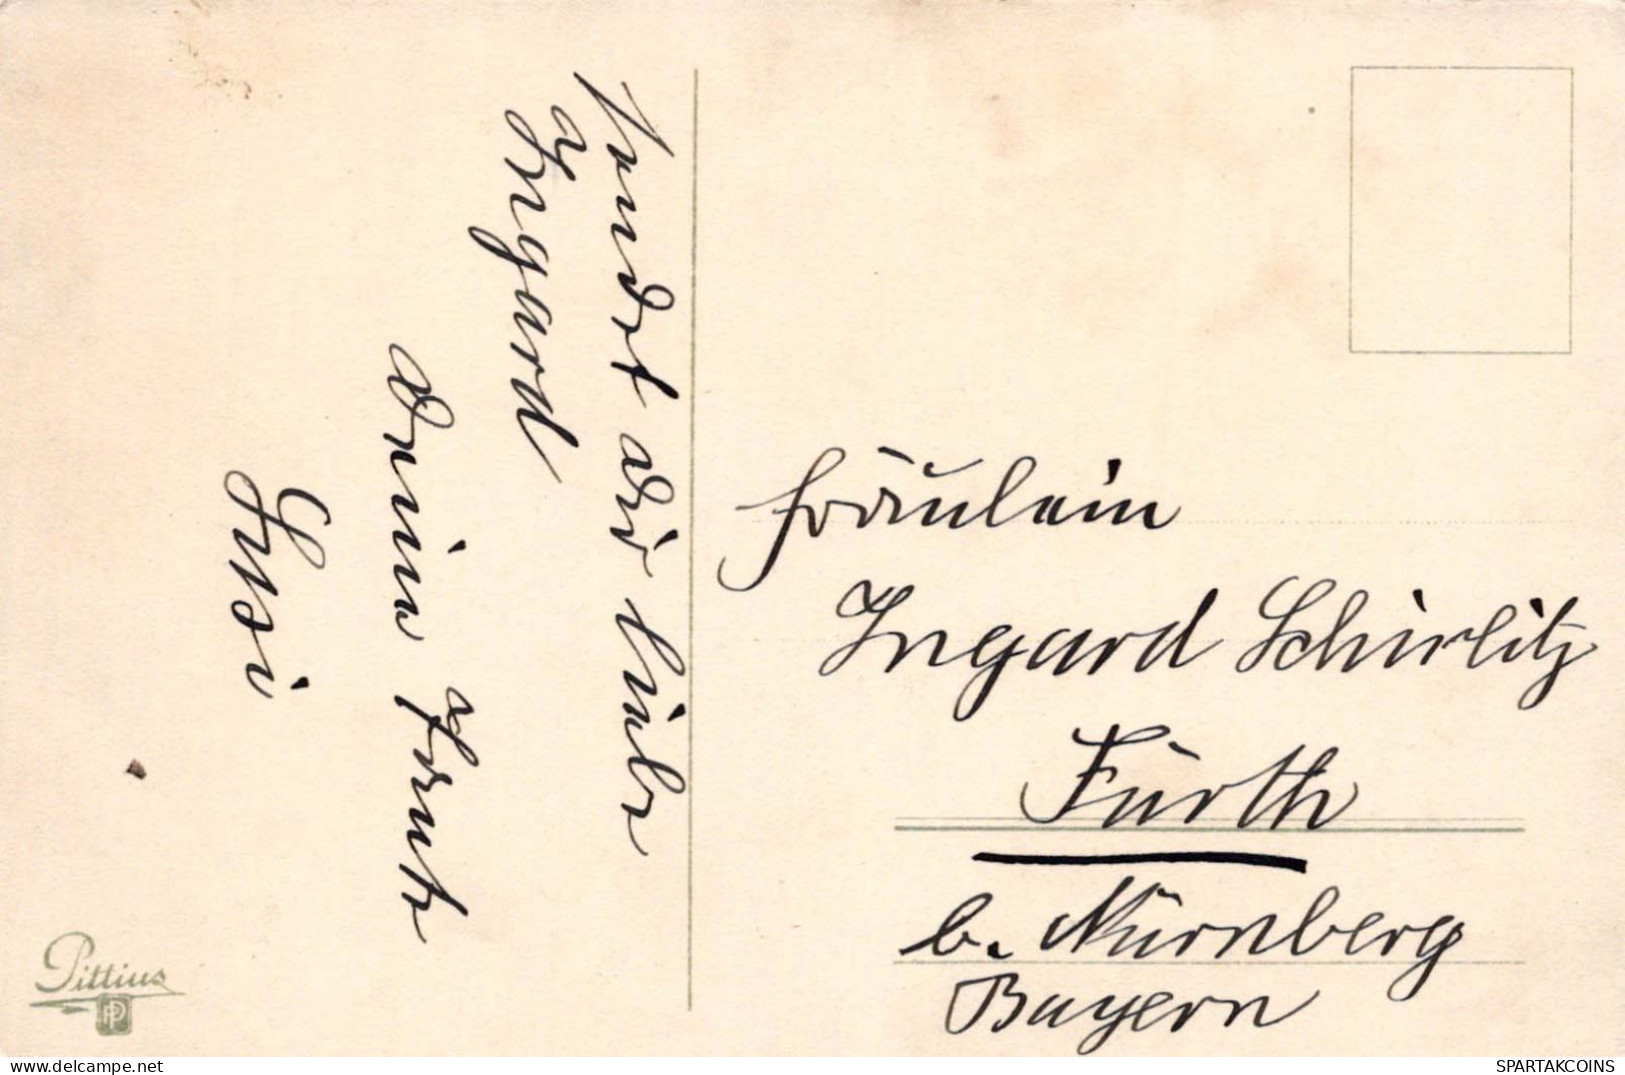 sendet dir liebe
Ingard
deine Tante
Susi
Fräulein
Ingard Schirlitz
Fürth
b. Nürnberg
Bayern
Pittius
PP
www.delcampe.net
SPARTAKCOINS